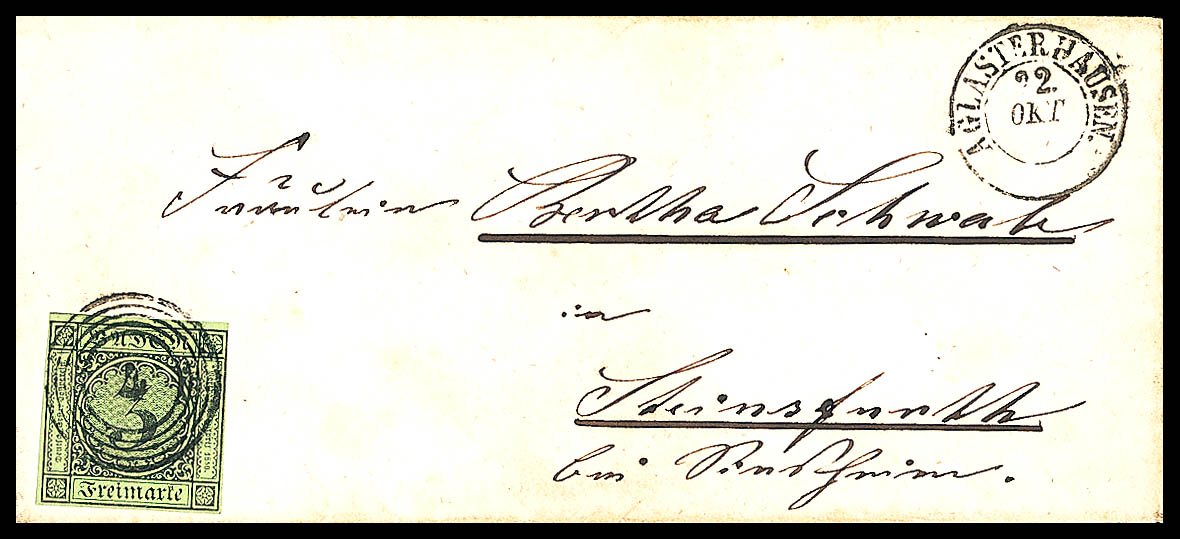 AGLASTERHAUSEN.
22.
OKT
Fräulein Bertha Schwab
in
Steinsfurth
bei Sinsheim.
BADEN
3
4
Freimarke